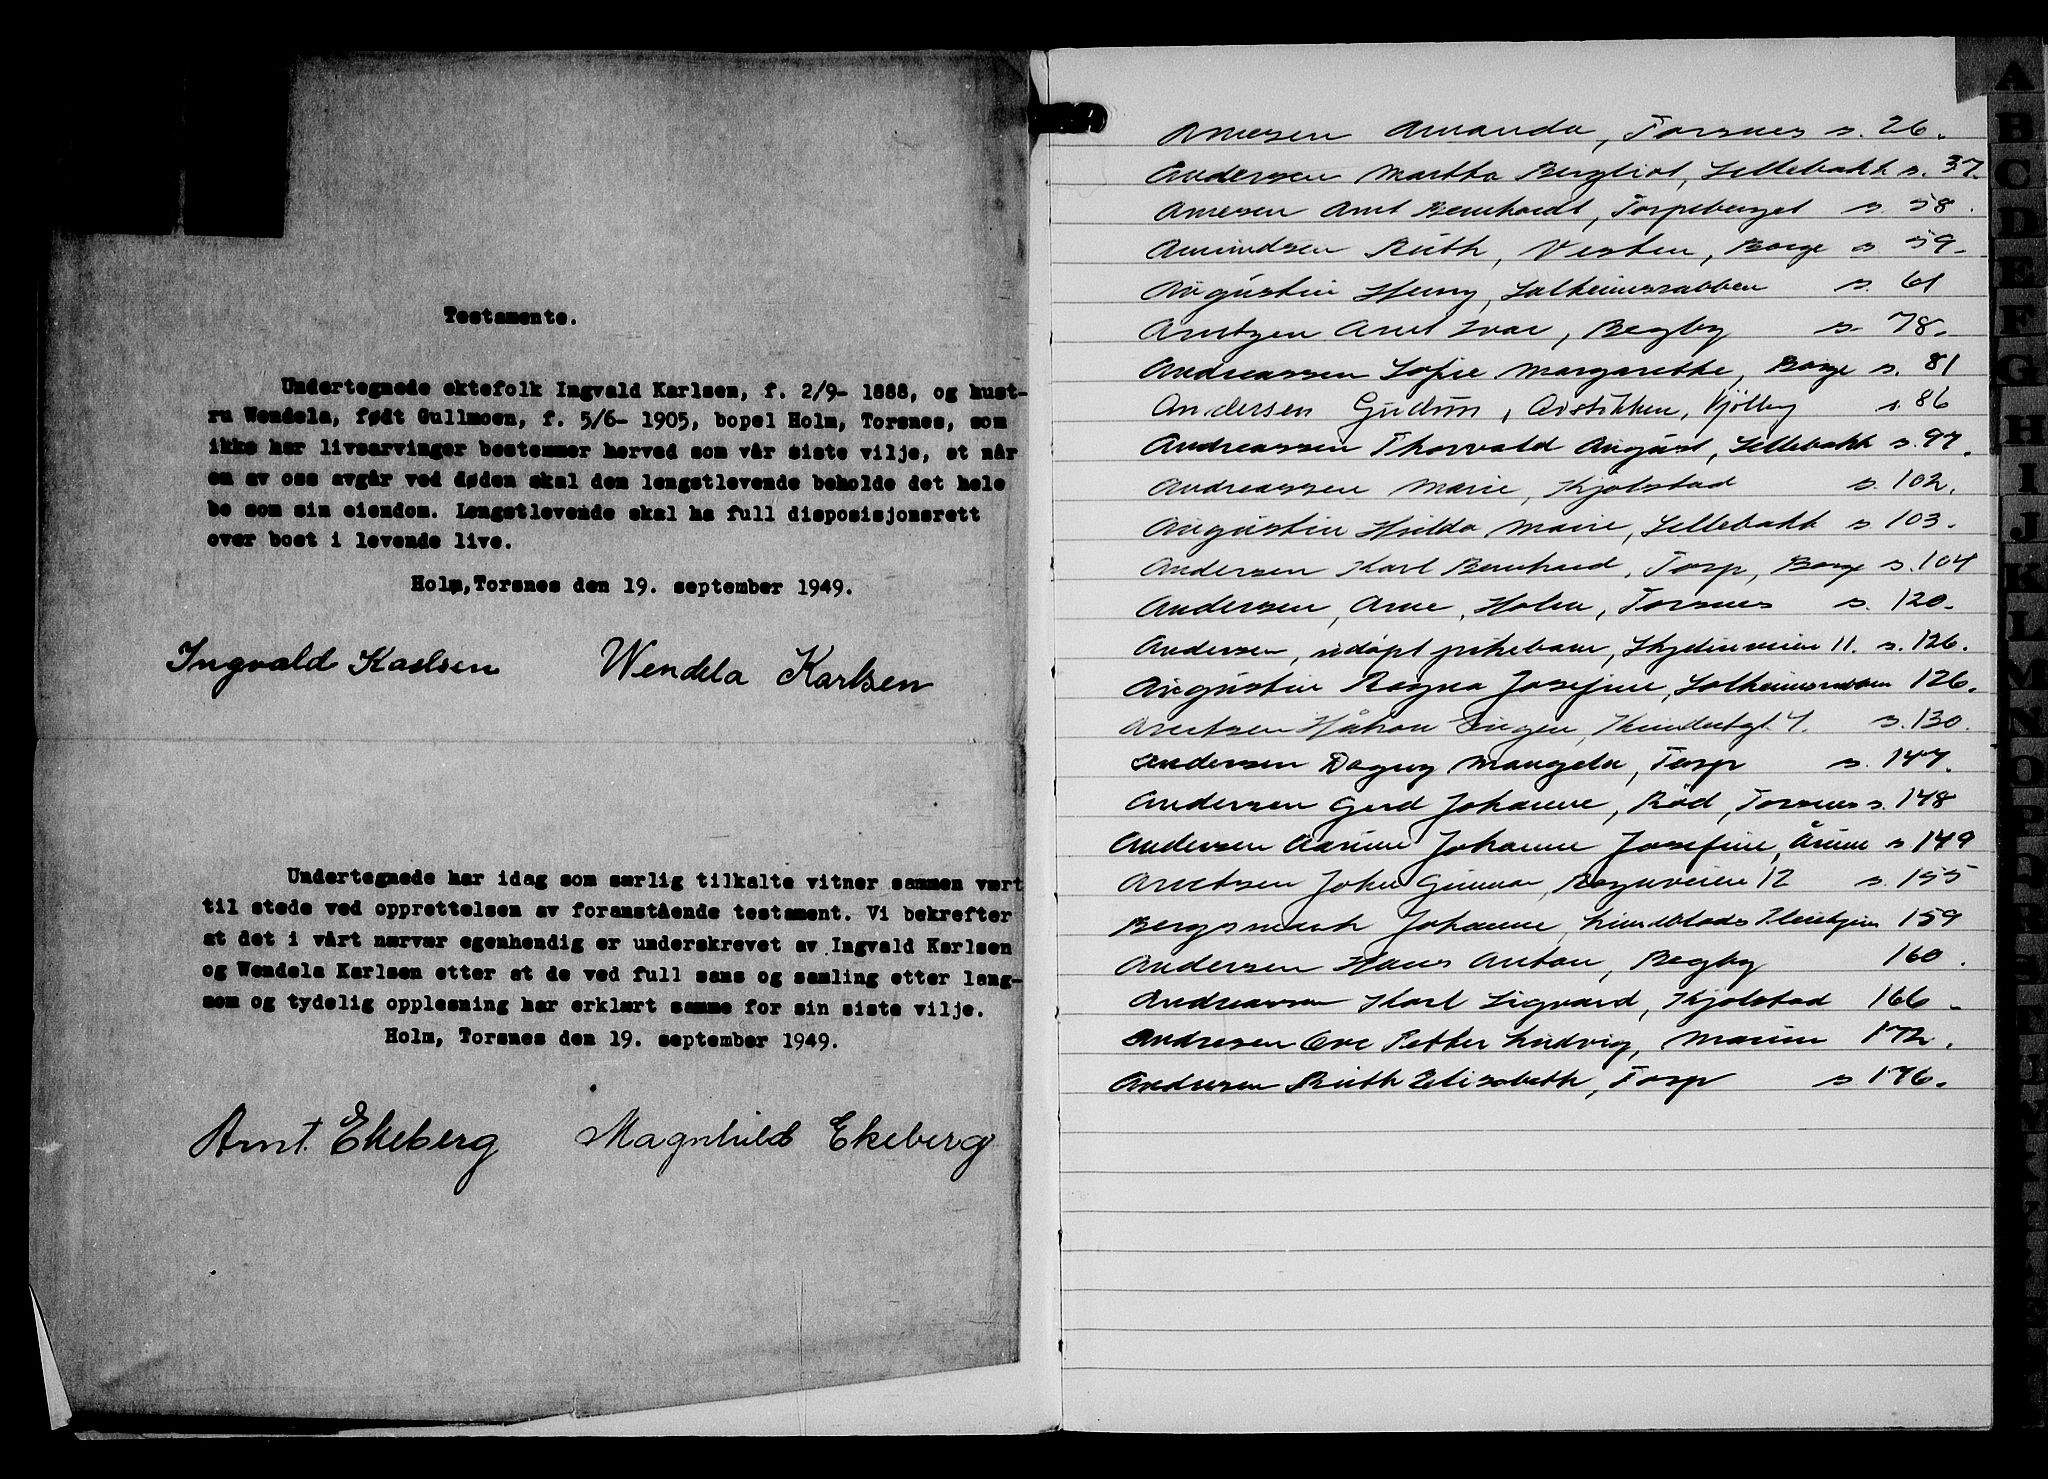 Testamente.
Undertegnede ektefolk Ingvald Karlsen, f. 2/9- 1888, og hust-
ru Wendela, født Gullmoen, f. 5/6- 1905, bopel Holm, Torsnes, som
ikke har livsarvinger bestemmer herved som vår siste vilje, at når
en av oss avgår ved døden skal den lengstlevende beholde det hele
bo som sin eiendom. Lengstlevende skal ha full disposisjonsrett
over boet i levende live.
Holm, Torsnes den 19. september 1949.
Ingvald Karlsen Wendela Karlsen
Undertegnede har idag som særlig tilkalte vitner sammen vært
til stede ved opprettelsen av foranstående testament. Vi bekrefter
at det i vårt nærvær egenhendig er underskrevet av Ingvald Karlsen
og Wendela Karlsen etter at de ved full sans og samling etter lang-
som og tydelig opplesning har erklært samme for sin siste vilje.
Holm, Torsnes den 19. september 1949.
Arnt. Ekeberg Magnhild Ekeberg
Arnesen Amanda, Torsnes s. 26.
Andersen Martha Bergliot, Sellebakk s. 37.
Arnesen Arnt Bernhardt, Torpeberget s. 58.
Amundsen Ruth, Vesten, Borge s. 59.
Augustin Henry, Solheimsrabben s. 61
Arntzen Arnt Ivar, Begby s. 78.
Andreassen Sofie Margarethe, Borge s. 81
Andersen Gudrun, Kjølby s. 86
Andreassen Thorvald August, Sellebakk s. 97.
Andreassen Marie, Kjølstad s. 102.
Augustin Hilda Marie, Sellebakk s. 103.
Andersen Karl Bernhard, Torp, Borge s. 104
Andersen, Arne, Holm, Torsnes s. 120.
Andersen, udøpt pikebarn, Skydinveien 11. s. 126.
Augustin Ragna Josefine, Solheimsrabben 126.
Arntsen Håkon 4. s. 130.
Andersen Dagny Mangela, Torp s. 147.
Andersen Gerd Johanne, Rød, Torsnes s. 148
Andersen Johanne Josefine, Årum s 149
Arntsen John Gunnar, Rognveien 12 s. 155
Bergsmark Johanne, Lundblads 159
Andersen Hans Anton, Begby 160.
Andreassen Karl Sigvard, Kjølstad 166.
Andresen Ove Petter Ludvig, 172.
Andersen Ruth Elisabeth, Torp s 176.
A
B
C
D
E
F
G
H
I
J
K
L
M
N
O
P